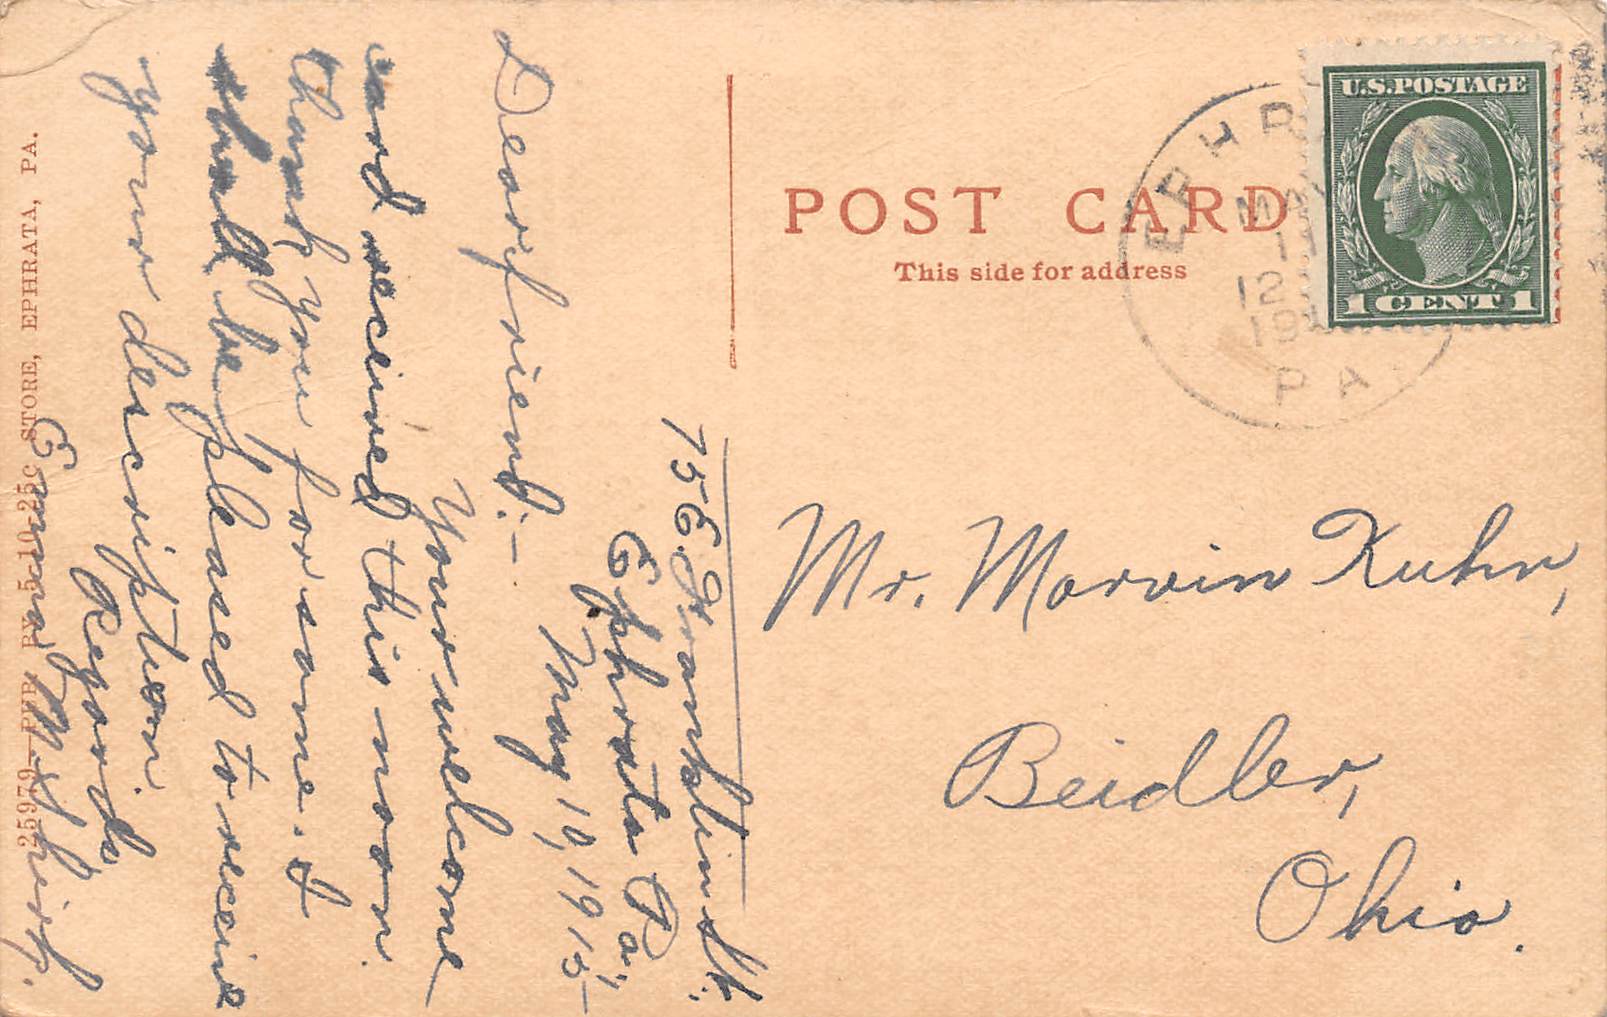 75 E. Franklin St.
Ephrata Pa.,
May 10, 1915
Dear friend:-
Your welcome
card received this noon.
Thank you for same. I
shall be pleased to receive
your description.
Regards,
Emma
25979—PUB. BY 5-10-25c STORE, EPHRATA, PA.
POST CARD
This side for address
EPHR
MAY
11
12
191
PA.
U.S. POSTAGE
1 CENT 1
Mr. Marvin Kuhn,
Beidler,
Ohio.